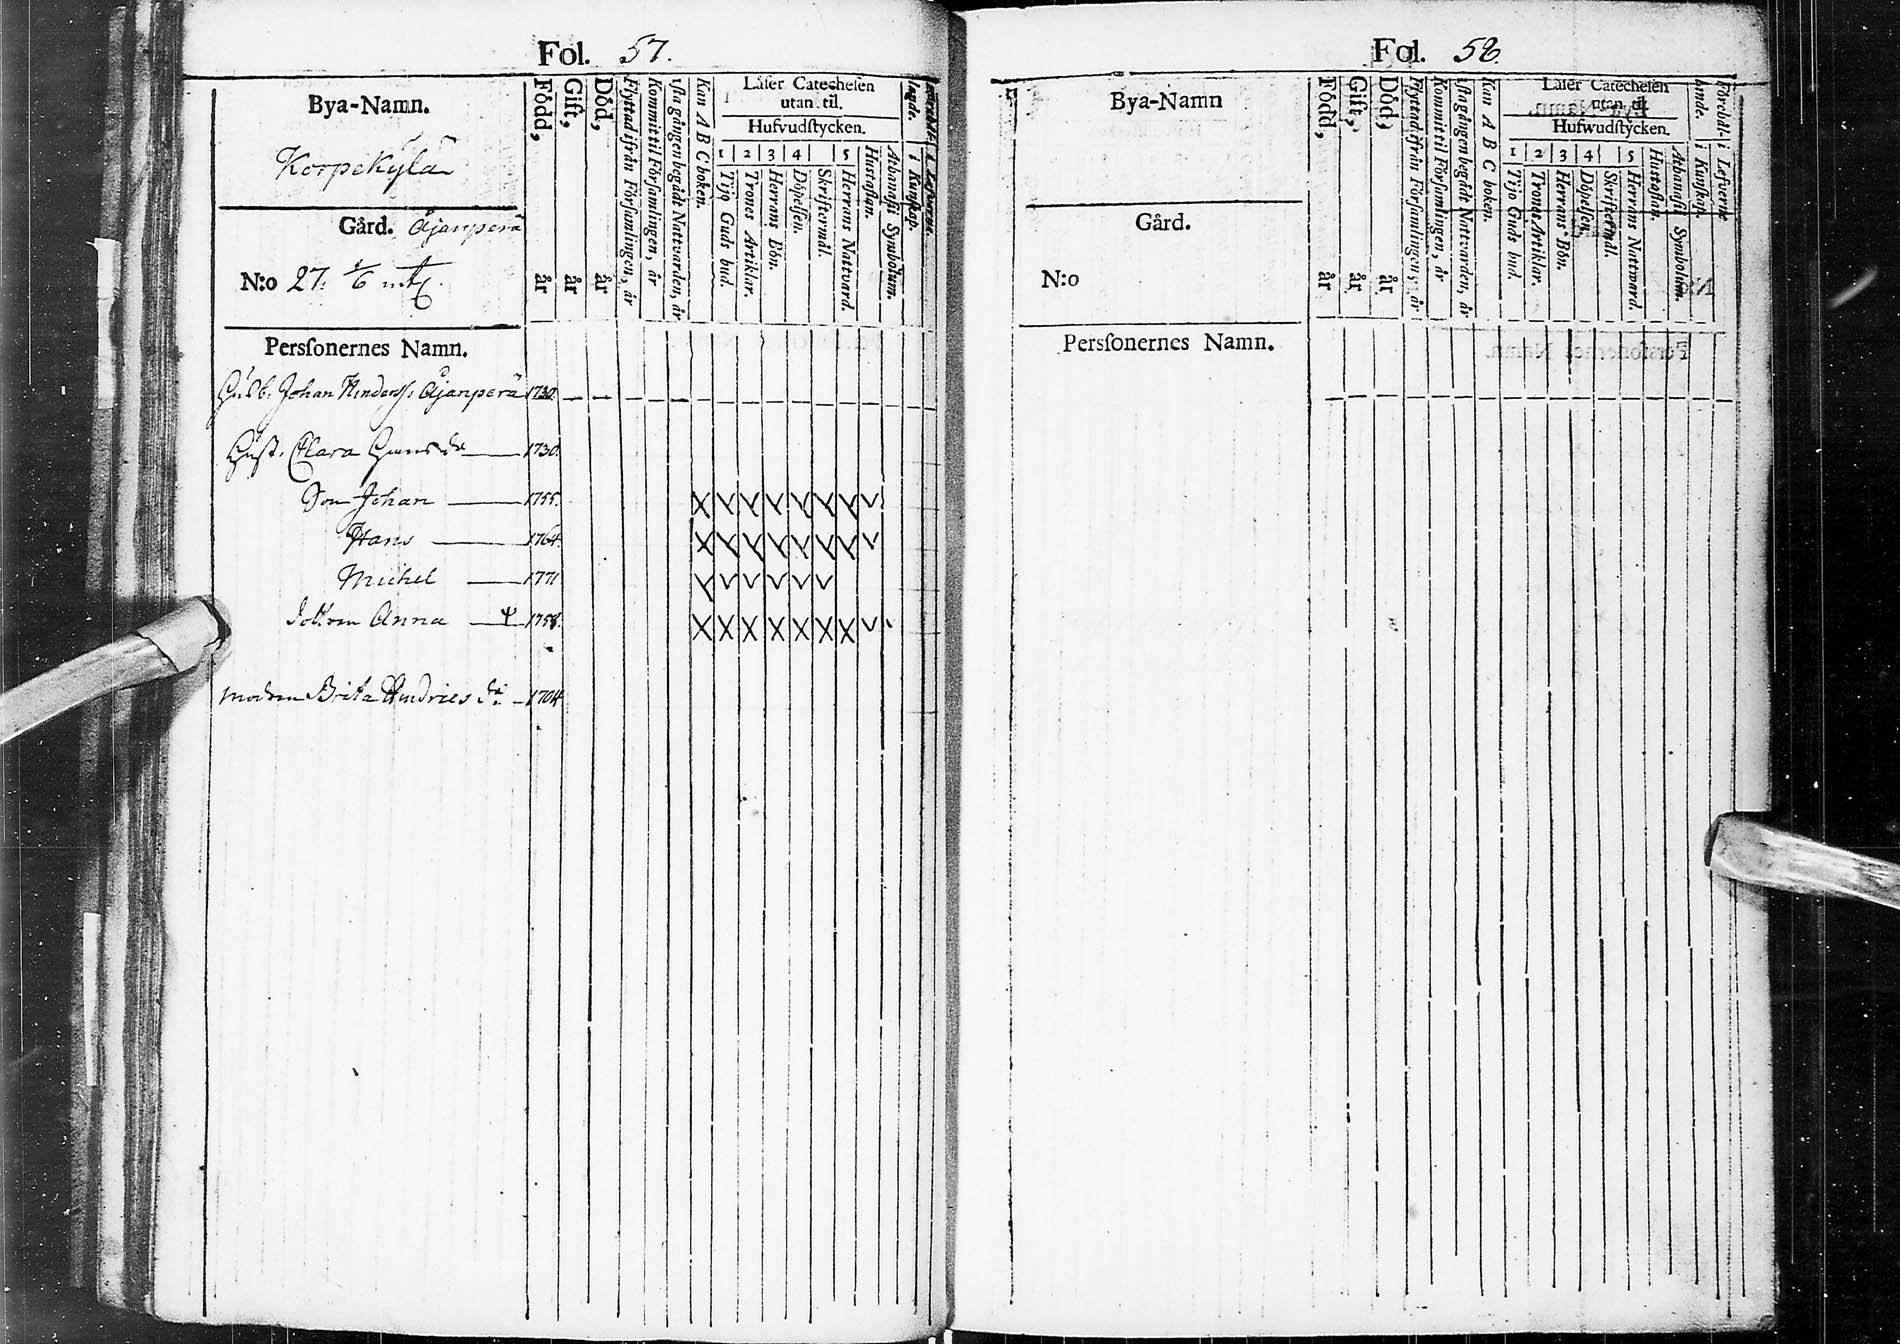 Fol. 57.
Bya-Namn.
Korpekÿlä
Gård. Äjanperä
N:o 27. 1/6 mtl.
Född, år
Gift, år
Död, år
Flyttad ifrån Församlingen, år
Kommit til Församlingen, år
1sta gången begådt Nattvarden, år
Kan A B C boken.
Läser Catechesen
utan til.
Hufvudstycken.
1 Tijo Guds bud.
2 Trones Artiklar.
3 Herrans Bön.
4 Döpelsen.
Skriftermål.
5 Herrans Nattvard.
Hustaflan.
Athanasii Symbolum.
i Kunskap.
i Lefverne
Persſonernes Namn.
Husb. Johan Anderss: Äjanperä 1730.
Hust. Clara Hansdr 1730.
Son Johan 1755.
Hans 1764.
Michel 1771
Dottren Anna 1758.
Modren Brita Andriesdr. 1704
Fol. 58.
Bya-Namn
Gård.
N:o
Född, år
Gift, år
Död, år
Flyttad ifrån Församlingen, år
Kommit til Församlingen, år
1sta gången begådt Nattvarden, år
Kan A B C boken.
Läser Catechesen
utan til.
Hufwudstycken.
1 Tijo Guds bud.
2 Trones Artiklar.
3 Herrans Bön.
4 Döpelsen.
Skriftermål.
5 Herrans Nattvard.
Hustaflan.
Athanasii Symbolum.
Förhållande. i Kunskap.
i Lefverne
Persſonernes Namn.